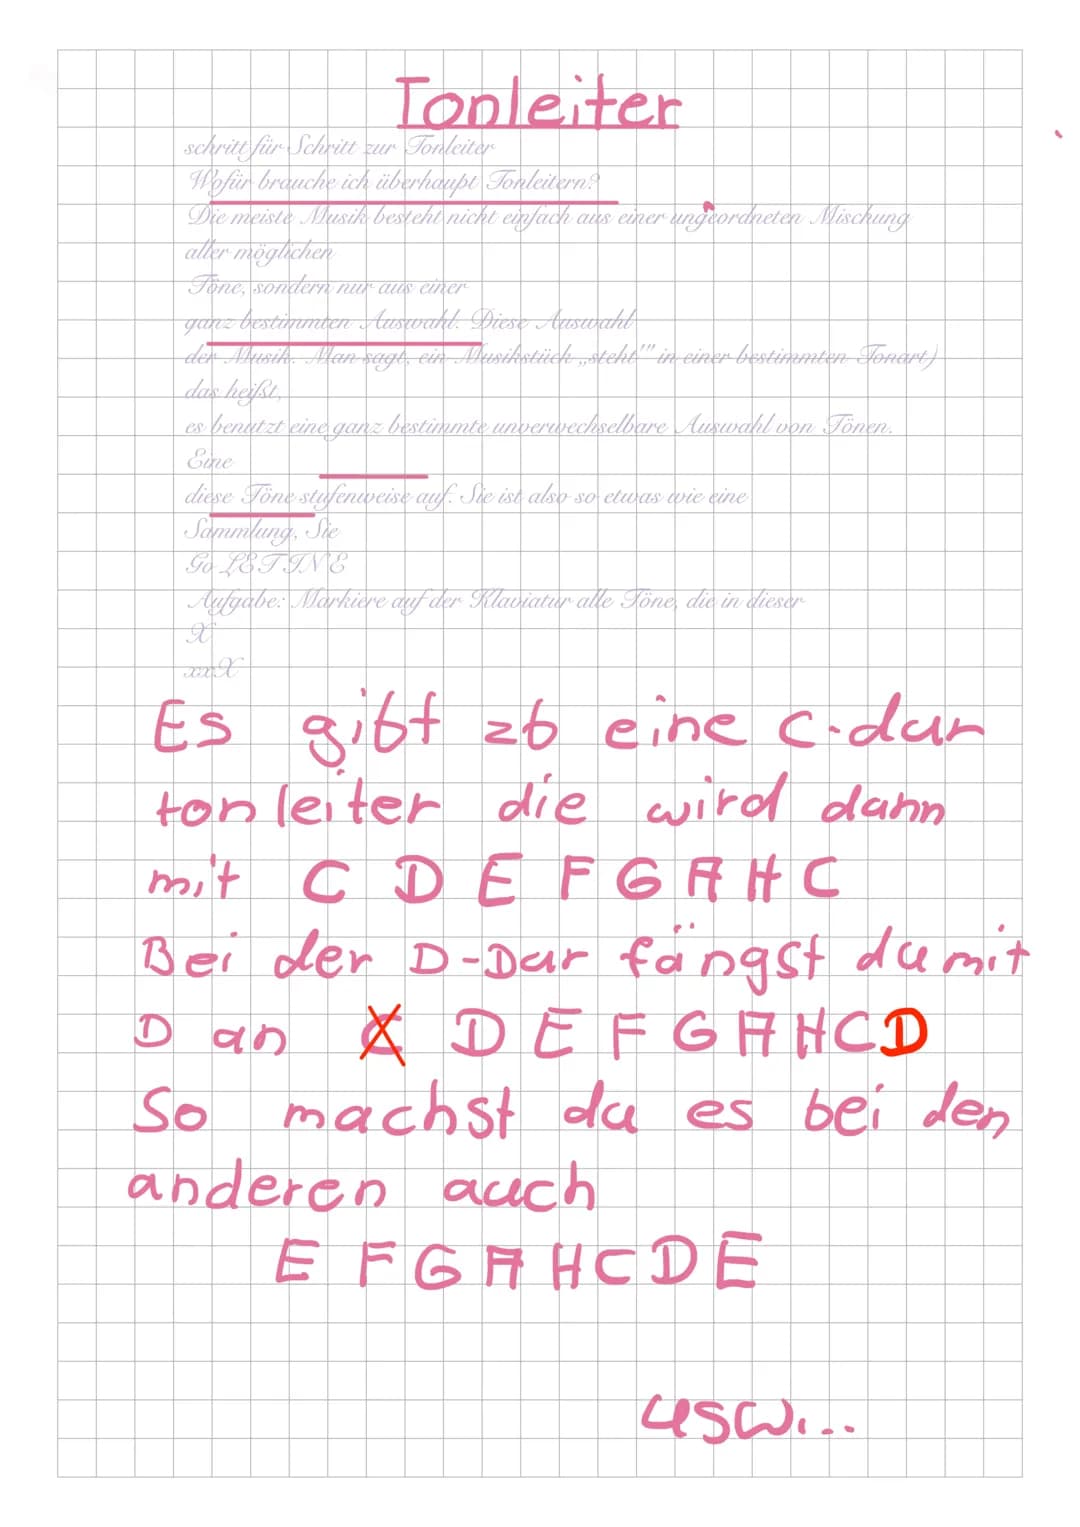 Tonleiter
schritt für Schritt zur Tonleiter
Wofür brauche ich überhaupt Tonleitern?
Die meiste Musik besteht nicht einfach aus einer ungeordneten Mischung
aller möglichen
Töne, sondern nur aus einer
ganz bestimmten Auswahl. Diese Auswahl
der Musik. Man sagt, ein Musikstück „steht"" in einer bestimmten Tonart)
das heißt,
es benutzt eine ganz bestimmte unverwechselbare Auswahl von Tönen.
Eine
diese Töne stufenweise auf. Sie ist also so etwas wie eine
Sammlung, Sie
Go LETINE
Aufgabe: Markiere auf der Klaviatur alle Töne, die in dieser
X
xxX
Es gibt zb eine C-dur
tonleiter die wird dann
mit C D E F G A H C
Bei der D-Dur fängst du mit
D an C D E F G A H C D
So machst du es bei den
anderen auch
E F G A H C D E
usw...